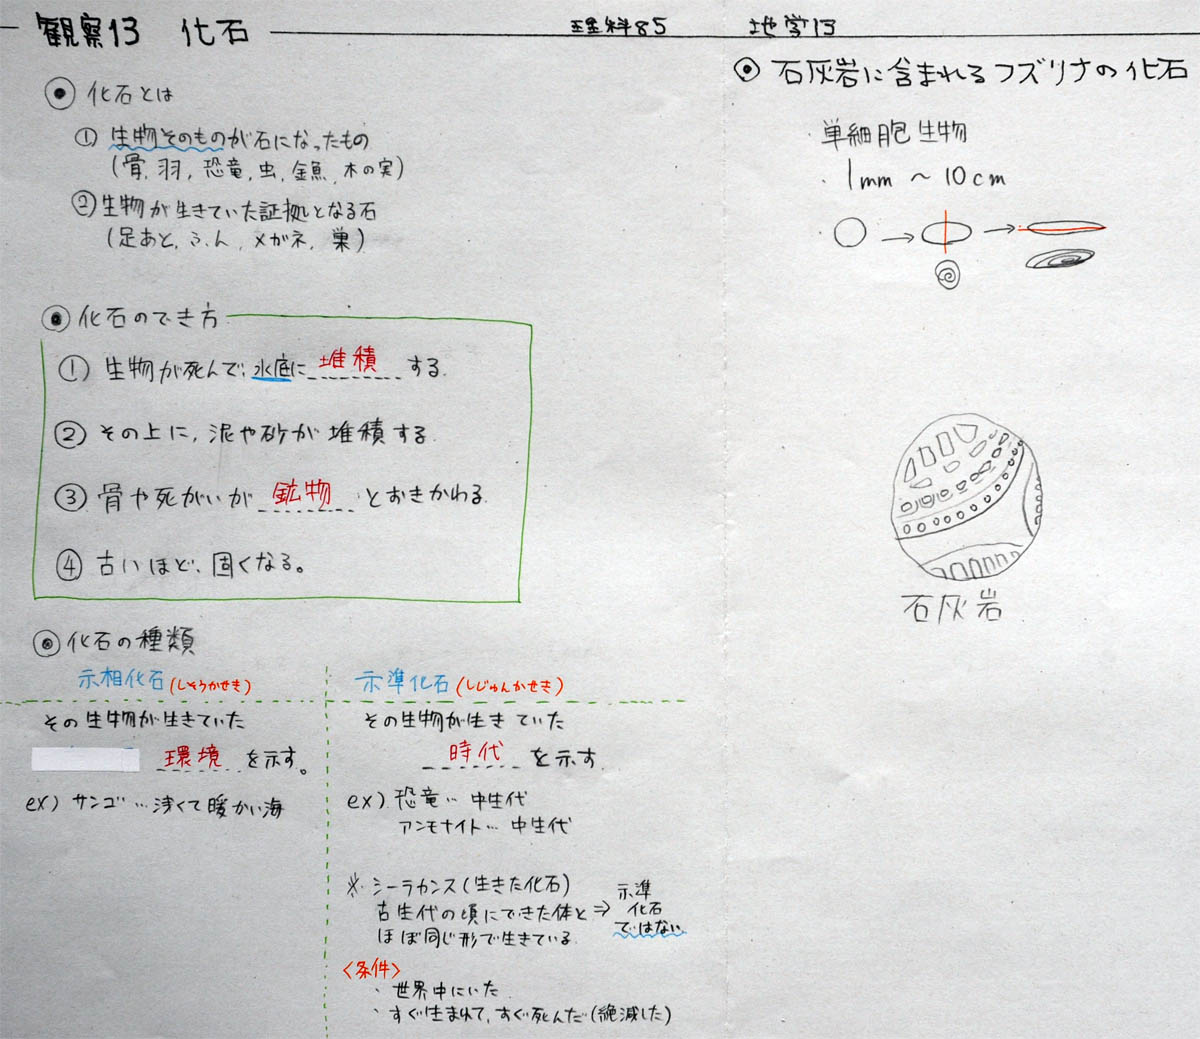 観察13 化石
理科85 地学13
◉ 化石とは
① 生物そのものが石になったもの
(骨,羽,恐竜,虫,金魚,木の実)
② 生物が生きていた証拠となる石
(足あと,ふん,メガネ,巣)
◉ 化石のでき方
① 生物が死んで、水底に 堆積 する.
② その上に,泥や砂が堆積する.
③ 骨や死がいが 鉱物 とおきかわる.
④ 古いほど、固くなる。
◉ 化石の種類
示相化石(しそうかせき)
その生物が生きていた
環境 を示す。
ex) サンゴ…浅くて暖かい海
示準化石(しじゅんかせき)
その生物が生きていた
時代 を示す.
ex) 恐竜…中生代
アンモナイト…中生代
※シーラカンス(生きた化石)
古生代の頃にできた体と
ほぼ同じ形で生きている.
⇒ 示準
化石
ではない
<条件>
・世界中にいた.
・すぐ生まれて,すぐ死んだ(絶滅した)
◉ 石灰岩に含まれるフズリナの化石
・単細胞生物
・1mm 〜 10cm
石灰岩